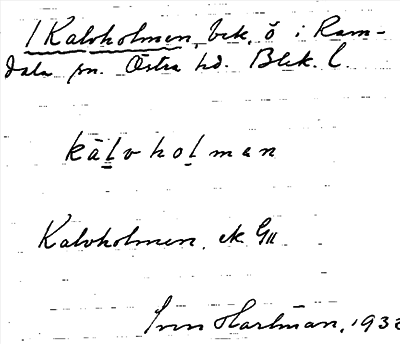 1 Kalvholmen, bek. ö i Ram-
dala sn. Östra hd. Blek. l.
kalvholmen
Kalvholmen, ek G11
Hartman, 1932